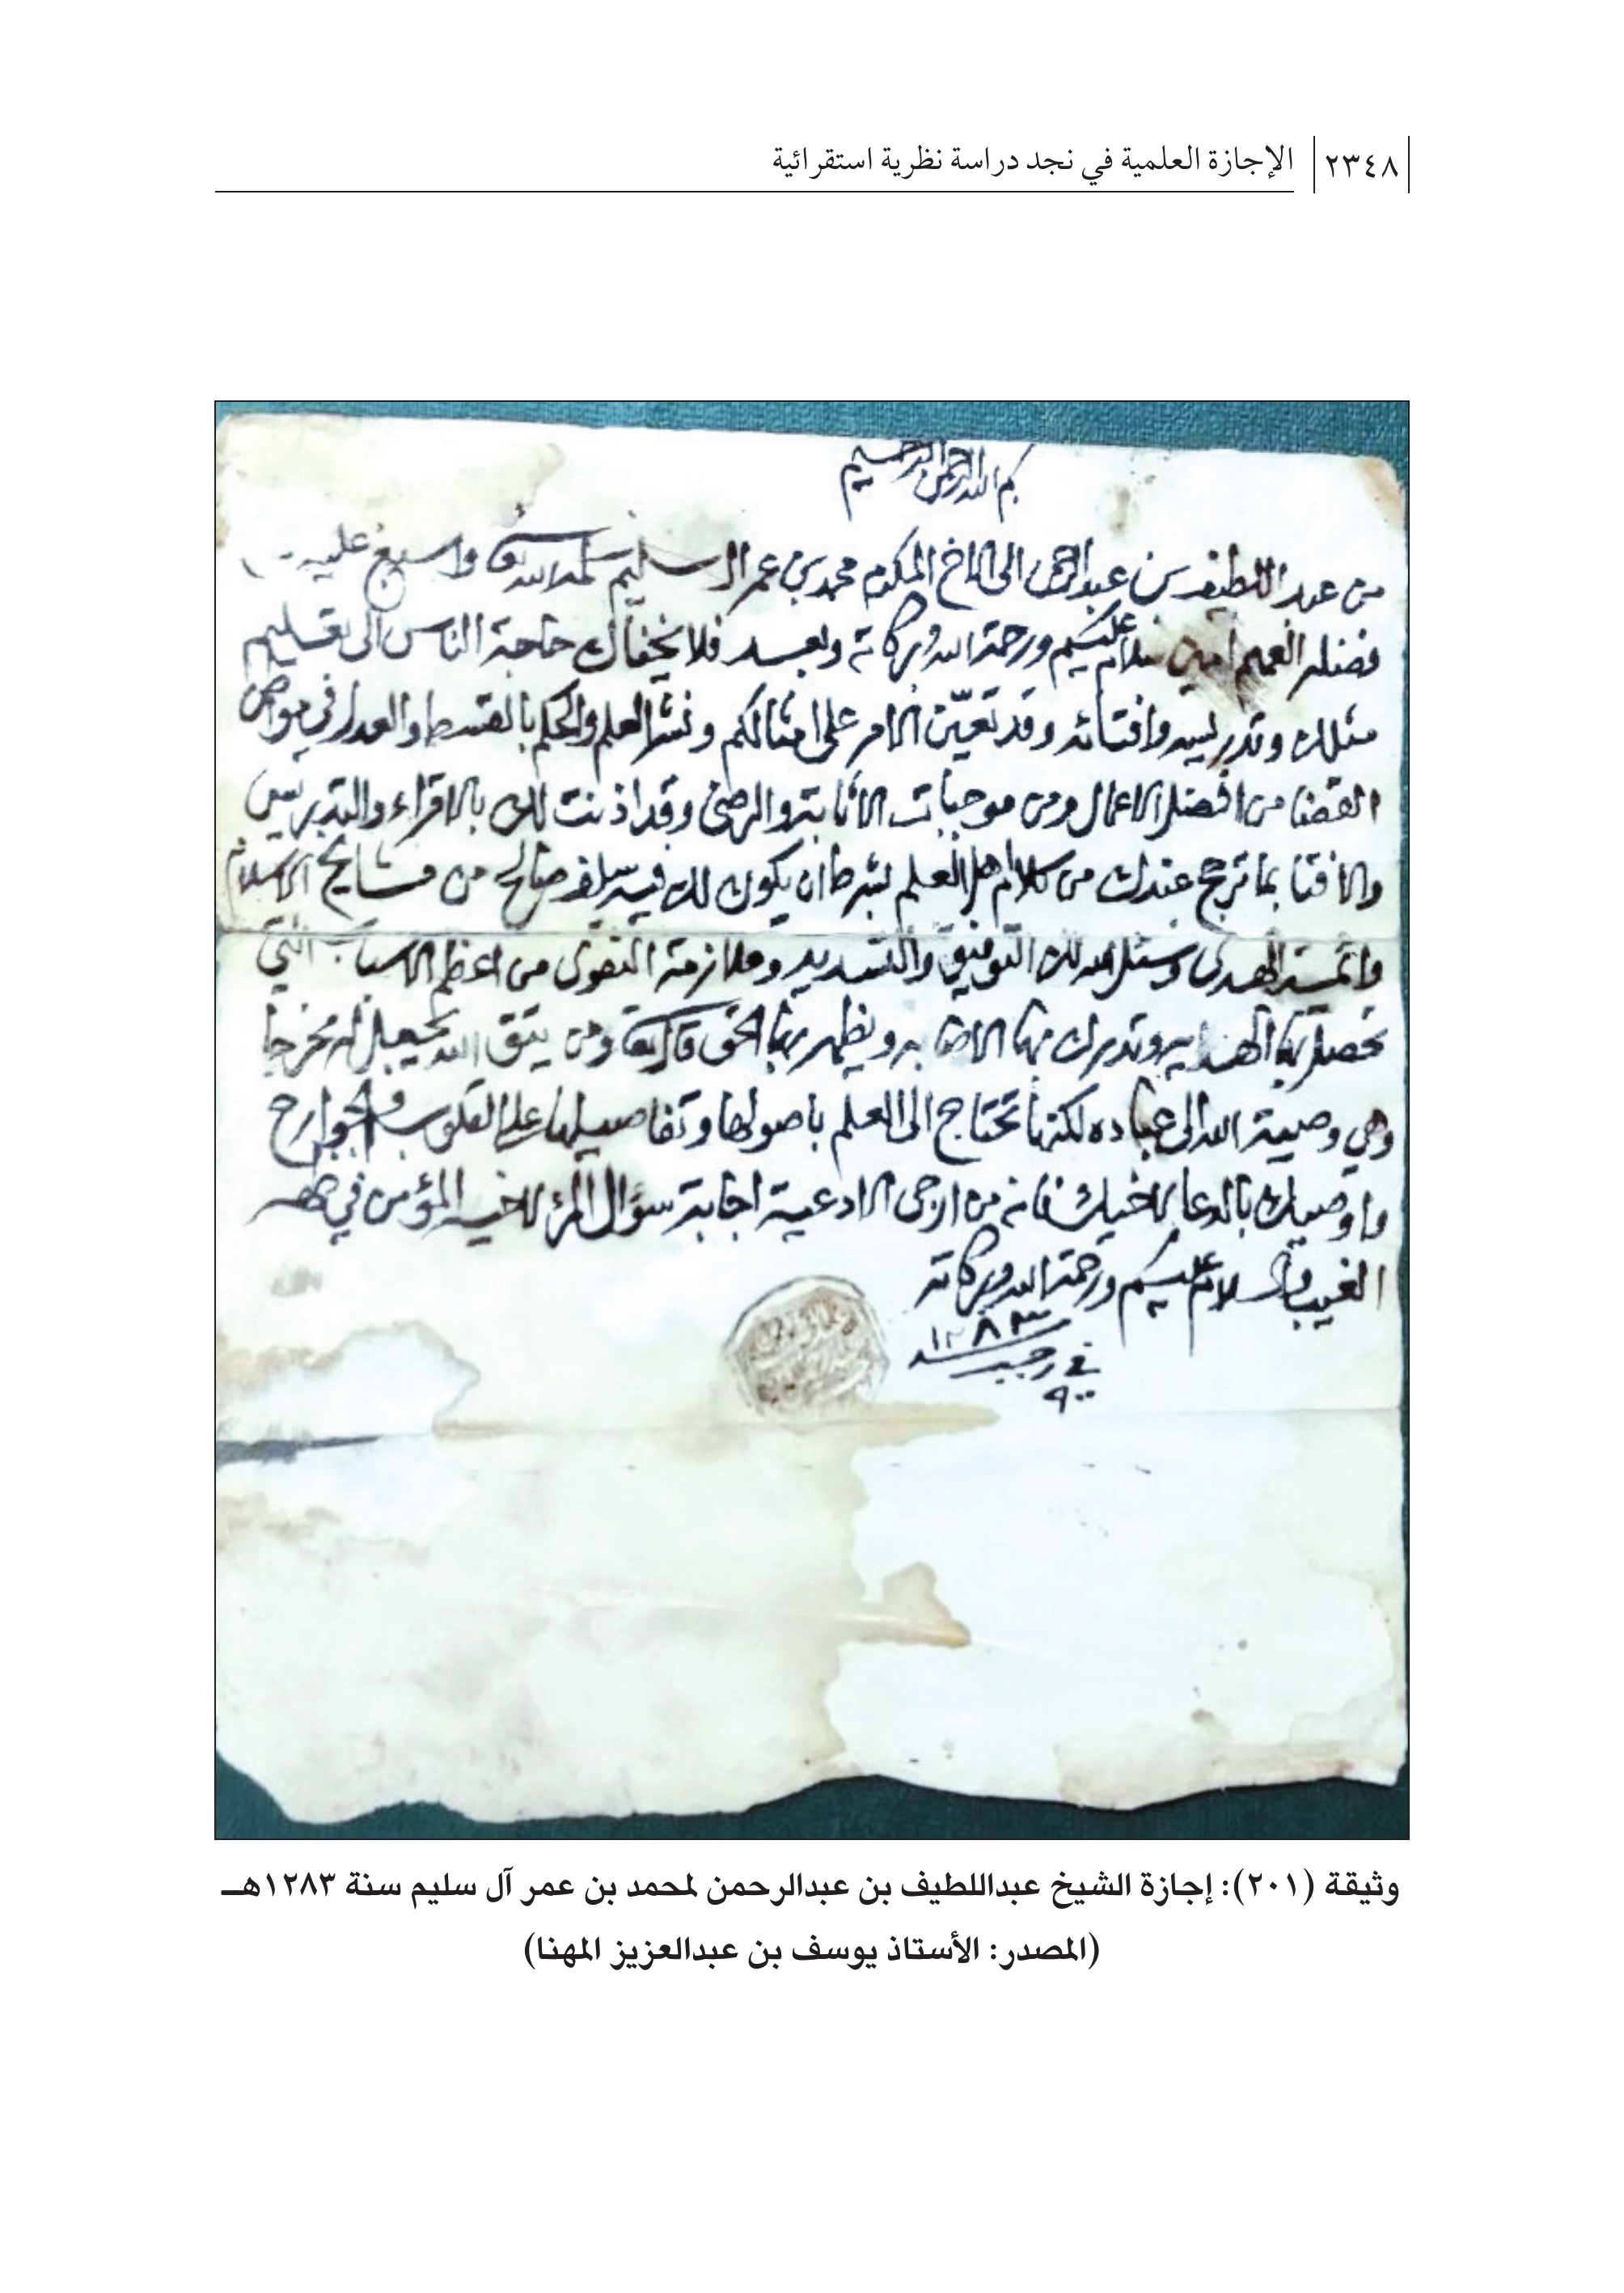 ٢٣٤٨ الإجازة العلمية في نجد دراسة نظرية استقرائية
بسم الله الرحمن الرحيم
من عبد اللطيف بن عبد الرحمن الى الاخ المكرم محمد بن عمر ال سليم سلمه الله تعالى واسبغ عليه
فضله العميم امين سلام عليكم ورحمة الله وبركاته وبعد فلا يخفاك حاجة الناس الى تعليم
مثلك وتدريسه وافتائه وقد تعيّن الامر على امثالكم ونشر العلم والحكم بالقسط والعدل في
القضا من افضل الاعمال ومن موجبات الاثابة والرضى وقد اذنت لك بالاقراء والتدريس
والافتا بما ترجح عندك من كلام اهل العلم بشرط ان يكون لك فيه سلف صالح من مشايخ الاسلام
وائمة الهدى ونسئل الله لك التوفيق والتسديد وملازمة التقوى من اعظم الاسباب التي
تحصل بها الهدايه وتدرك بها الاصابه ويظهر بها الحق قال تعالى ومن يتق الله يجعل له مخرجا
وهي وصية الله الى عباده لكنها تحتاج الى العلم باصولها وتفاصيلها على القلوب والجوارح
واوصيك بالدعا لاخيك فانه من ارجى الادعية اجابة سؤال المرء لاخيه المؤمن في ظهر
الغيب والسلام عليكم ورحمة الله وبركاته
١٢٨٣
في رجب
وثيقة (٢٠١): إجازة الشيخ عبداللطيف بن عبدالرحمن لمحمد بن عمر آل سليم سنة ١٢٨٣هـ
(المصدر: الأستاذ يوسف بن عبدالعزيز المهنا)